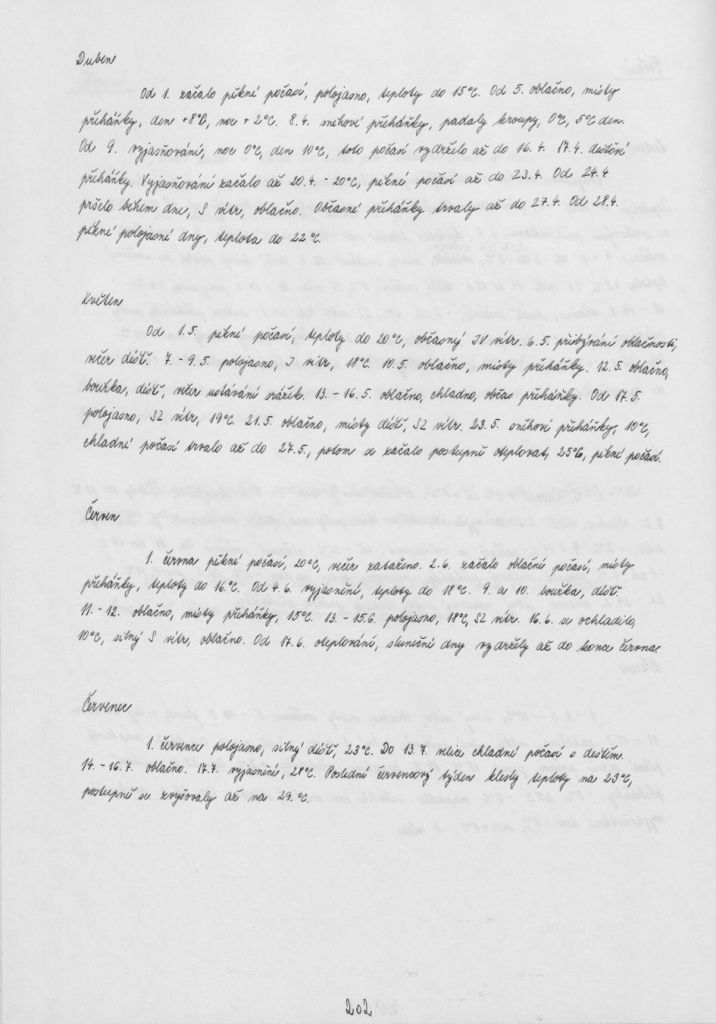 Duben
Od 1. začalo pěkné počasí, polojasno, teploty do 15°C. Od 5. oblačno, místy
přeháňky, den +8°C, noc + 2°C. 8.4. sněhové přeháňky, padaly kroupy, 0°C, 5°C den.
Od 9. vyjasňování, noc 0°C, den 10°C, toto počasí vydrželo až do 16.4. 17.4. dešťové
přeháňky. Vyjasňování začalo až 20.4. - 20°C, pěkné počasí až do 23.4. Od 24.4
pršelo během dne, S vítr, oblačno. Občasné přeháňky trvaly až do 27.4. Od 28.4.
pěkné polojasné dny, teplota do 22°C.
Květen
Od 1.5. pěkné počasí, teploty do 20°C, občasný JV vítr. 6.5. přibývání oblačnosti,
večer déšť. 7. - 9.5. polojasno, J vítr, 18°C. 10.5. oblačno, místy přeháňky. 12.5. oblačno,
bouřka, déšť, večer ustávání srážek. 13. - 16.5. oblačno, chladno, občas přeháňky. Od 17.5.
polojasno, SZ vítr, 19°C. 21.5. oblačno, místy déšť, SZ vítr. 23.5. sněhové přeháňky, 10°C,
chladné počasí trvalo až do 27.5., potom se začalo postupně oteplovat, 25°C, pěkné počasí.
Červen
1. června pěkné počasí, 20°C, večer zataženo. 2.6. začalo oblačné počasí, místy
přeháňky, teploty do 16°C. Od 4.6. vyjasnění, teploty do 18°C. 9. a 10. bouřka, déšť.
11. - 12. oblačno, místy přeháňky, 15°C. 13. - 15.6. polojasno, 18°C, SZ vítr. 16.6. se ochladilo,
10°C, silný S vítr, oblačno. Od 17.6. oteplování, sluneční dny vydržely až do konce června.
Červenec
1. července polojasno, silný déšť, 23°C. Do 13.7. velice chladné počasí s deštěm.
14. - 16.7. oblačno. 17.7. vyjasnění, 28°C. Poslední červencový týden klesly teploty na 23°C,
postupně se zvyšovaly až na 29.°C.
202